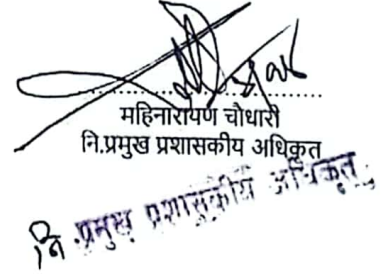 महिनारायण चौधारी
नि.प्रमुख प्रशासकीय अधिकृत
नि.प्रमुख प्रशासकीय अधिकृत